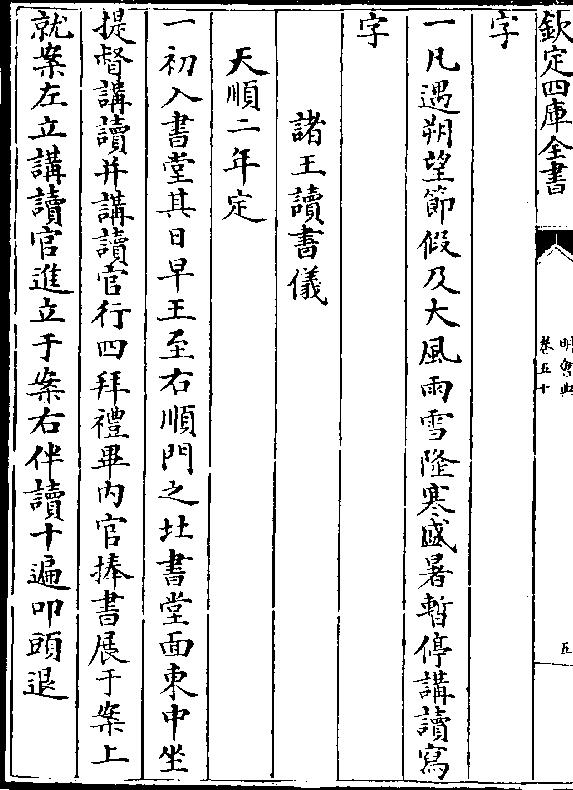 欽定四庫全書
明會典
卷五十
五
字
一凡遇朔望節假及大風雨雪隆寒盛暑暫停講讀寫
字
諸王讀書儀
天順二年定
一初入書堂其日早王至右順門之北書堂面東中坐
提督講讀并講讀官行四拜禮畢内官捧書展于案上
就案左立講讀官進立于案右伴讀十遍叩頭退